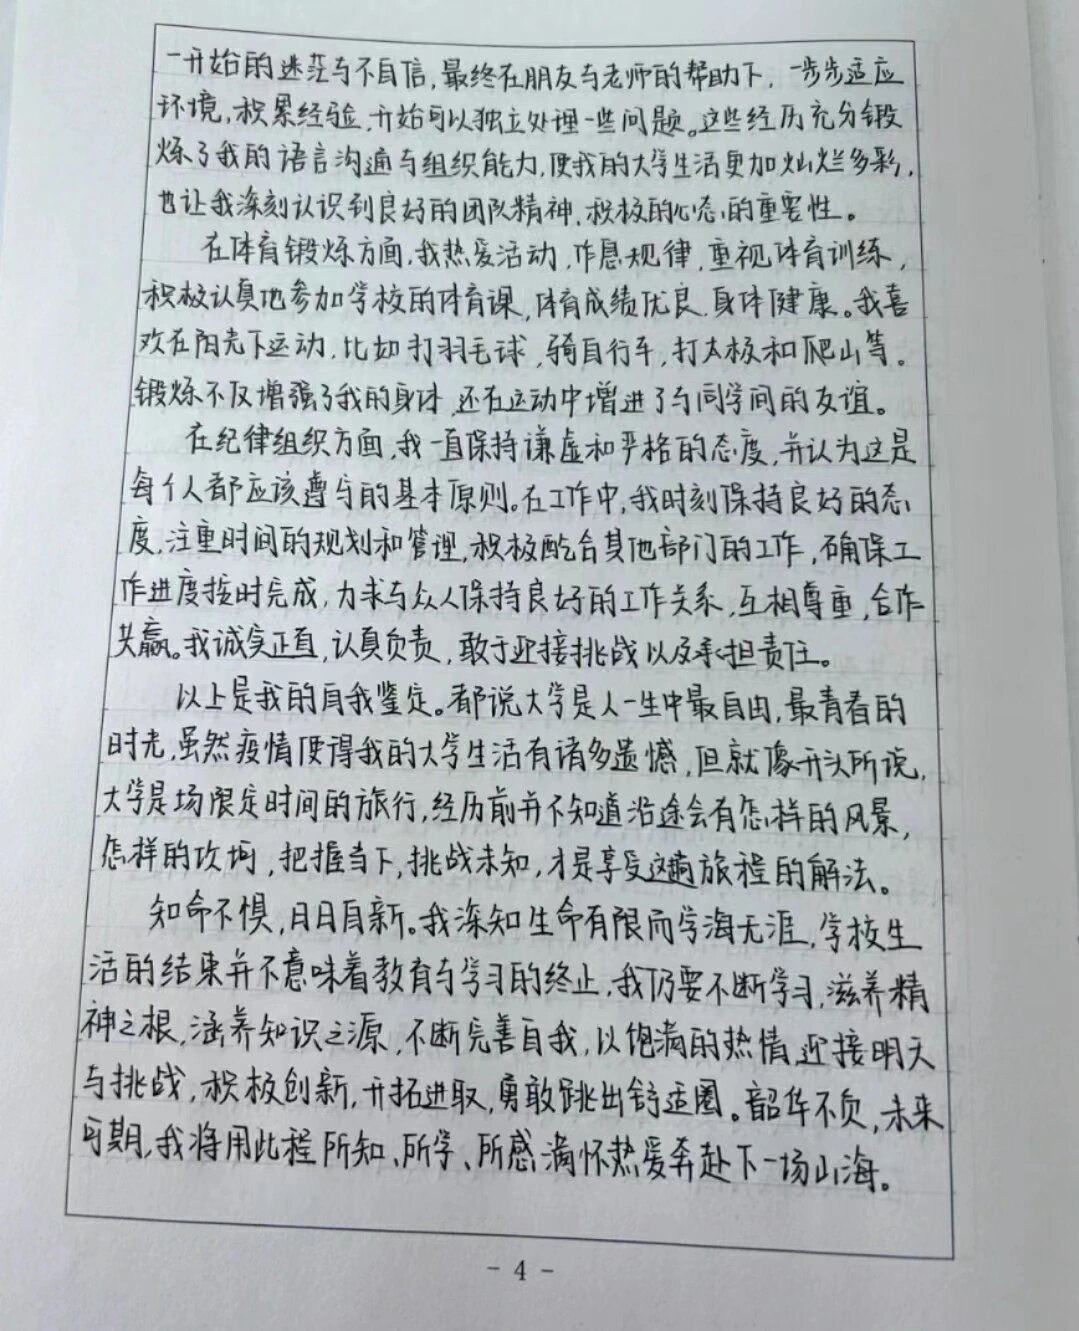 一开始的迷茫与不自信，最终在朋友与老师的帮助下，一步步适应
环境，积累经验，开始可以独立处理一些问题。这些经历充分锻
炼了我的语言沟通与组织能力，使我的大学生活更加灿烂多彩，
也让我深刻认识到良好的团队精神、积极的心态的重要性。
在体育锻炼方面，我热爱活动，作息规律，重视体育训练，
积极认真地参加学校的体育课，体育成绩优良，身体健康。我喜
欢在阳光下运动，比如打羽毛球，骑自行车，打太极和爬山等。
锻炼不仅增强了我的身体，还在运动中增进了与同学间的友谊。
在纪律组织方面，我一直保持谦虚和严格的态度，并认为这是
每个人都应该遵守的基本原则。在工作中，我时刻保持良好的态
度，注重时间的规划和管理，积极配合其他部门的工作，确保工
作进度按时完成，力求与众人保持良好的工作关系，互相尊重，合作
共赢。我诚实正直，认真负责，敢于迎接挑战以及承担责任。
以上是我的自我鉴定。都说大学是人一生中最自由，最青春的
时光，虽然疫情使得我的大学生活有诸多遗憾，但就像开头所说，
大学是场限定时间的旅行，经历前并不知道沿途会有怎样的风景，
怎样的坎坷，把握当下，挑战未知，才是享受这趟旅程的解法。
知命不惧，日日自新。我深知生命有限而学海无涯，学校生
活的结束并不意味着教育与学习的终止，我仍要不断学习，滋养精
神之根，涵养知识之源，不断完善自我，以饱满的热情迎接明天
与挑战，积极创新，开拓进取，勇敢跳出舒适圈。韶华不负，未来
可期，我将用此程所知、所学、所感满怀热爱奔赴下一场山海。
- 4 -